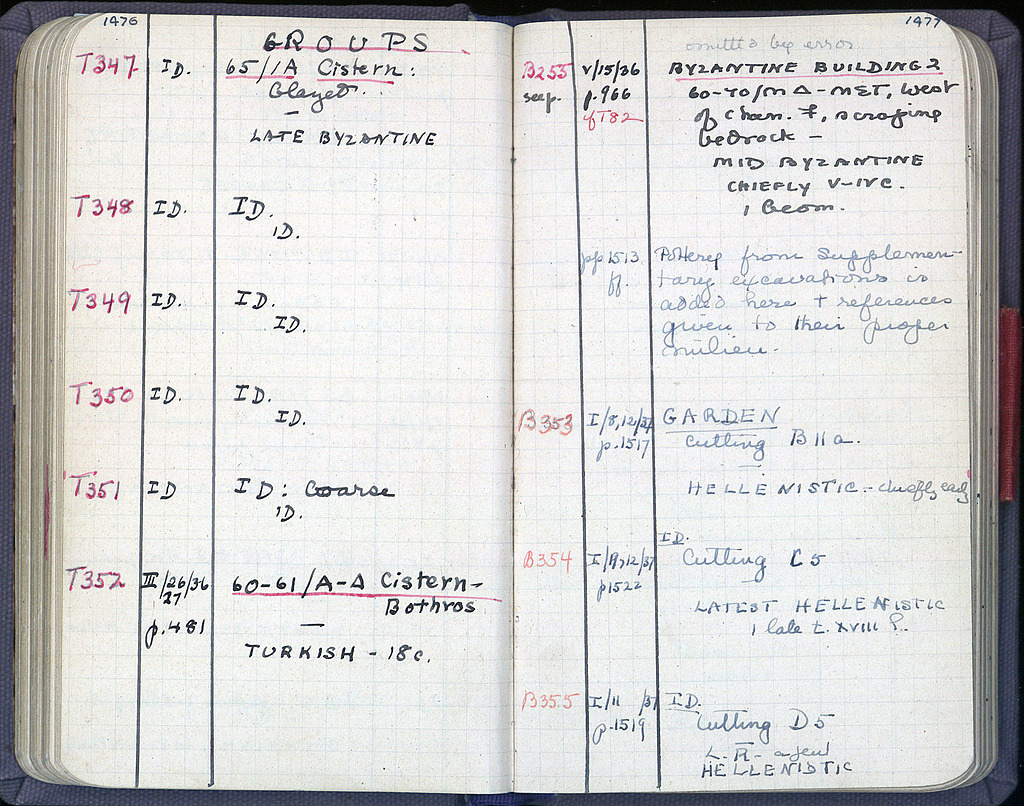 1476
GROUPS
T347 ID. 65/1A Cistern:
Glazed.
—
LATE BYZANTINE
T348 ID. ID.
ID.
T349 ID. ID.
ID.
T350 ID. ID.
ID.
T351 ID ID: Coarse
ID.
T352 III/26/36 60-61/A-Δ Cistern-
27 Bothros
p.481 —
TURKISH - 18c.
1477
omitted by error
B255 V/15/36 BYZANTINE BUILDING 2
seep. p.966 60-70/M Δ-MET, West
cf T82 of Cham. 7, scraping
bedrock -
MID BYZANTINE
CHIEFLY V-IVC.
1 Geom.
pp1513 Pottery from Supplemen-
ff. tary excavations is
added here + references
given to their proper
milieu.
B353 I/8,12/37 GARDEN
p.1517 Cutting B11a.
—
HELLENISTIC - chiefly early
ID.
B354 Cutting C5
p1522 —
LATEST HELLENISTIC
1 late t. XVIII
B355 I/11 /37 ID.
p.1519 Cutting D5
—
L. R. a few
HELLENISTIC